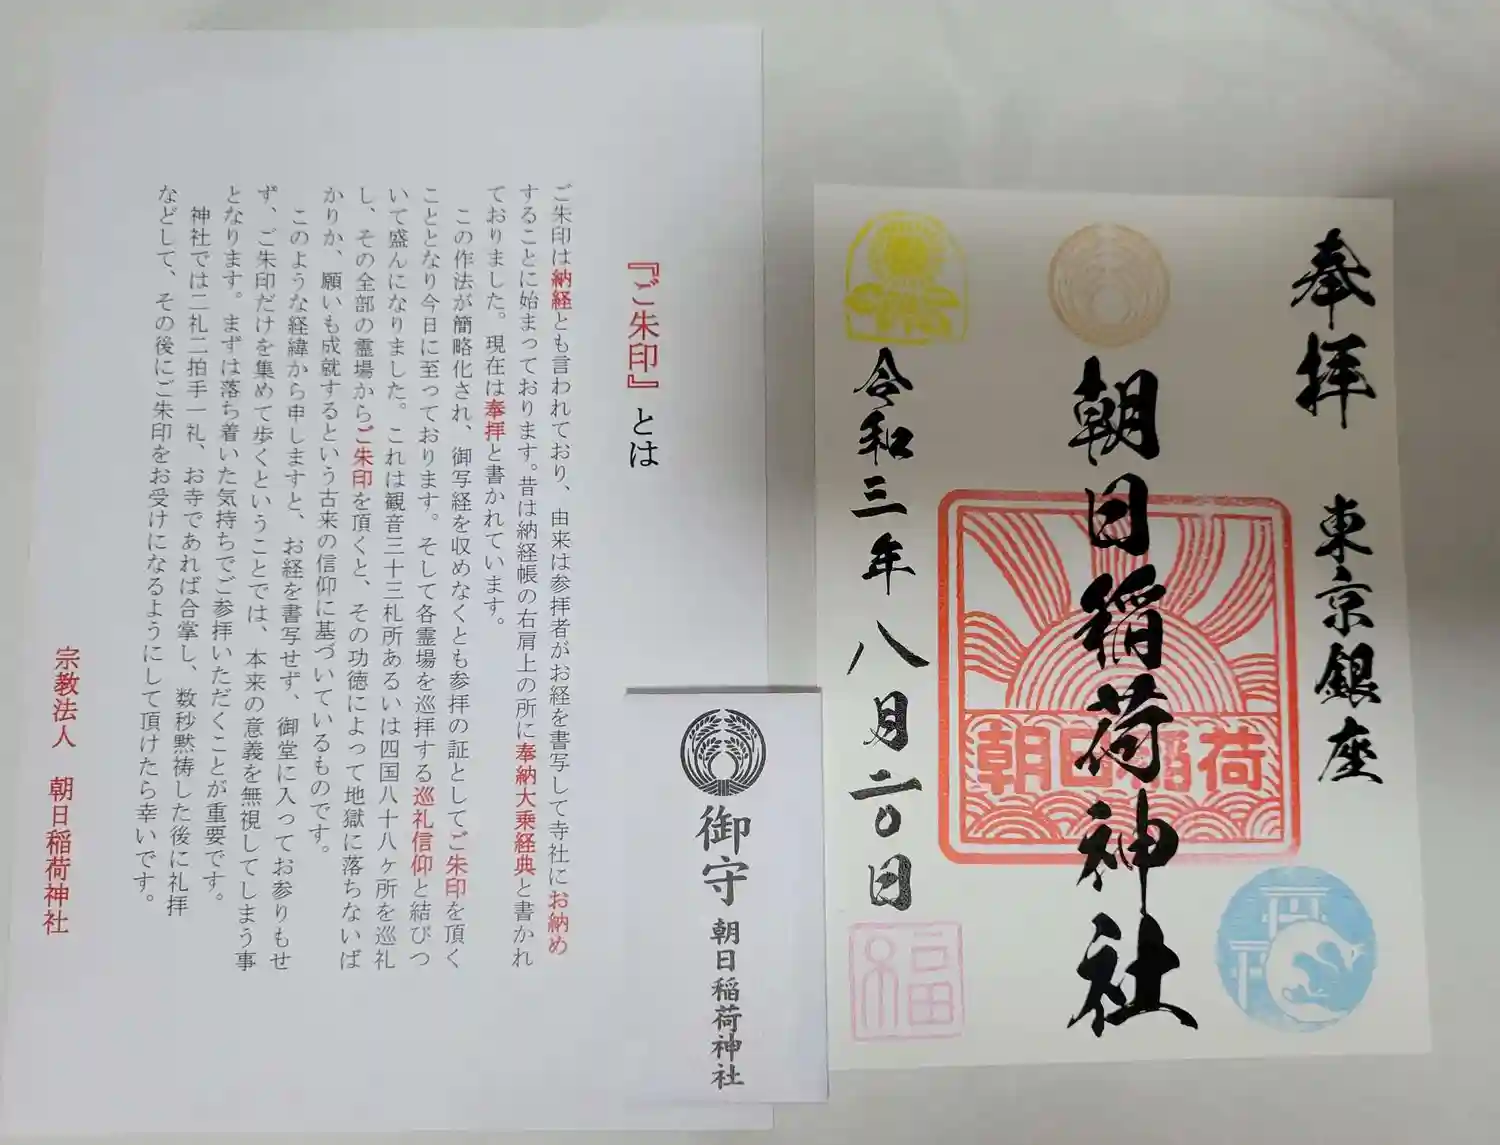 『ご朱印』とは
ご朱印は納経とも言われており、由来は参拝者がお経を書写して寺社にお納め
することに始まっております。昔は納経帳の右肩上の所に奉納大乗経典と書かれ
ておりました。現在は奉拝と書かれています。
この作法が簡略化され、御写経を収めなくとも参拝の証としてご朱印を頂く
こととなり今日に至っております。そして各霊場を巡拝する巡礼信仰と結びつ
いて盛んになりました。これは観音三十三札所あるいは四国八十八ヶ所を巡礼
し、その全部の霊場からご朱印を頂くと、その功徳によって地獄に落ちないば
かりか、願いも成就するという古来の信仰に基づいているものです。
このような経緯から申しますと、お経を書写せず、御堂に入ってお参りもせ
ず、ご朱印だけを集めて歩くということでは、本来の意義を無視してしまう事
となります。まずは落ち着いた気持ちでご参拝いただくことが重要です。
神社では二礼二拍手一礼、お寺であれば合掌し、数秒黙祷した後に礼拝
などして、その後にご朱印をお受けになるようにして頂けたら幸いです。
宗教法人 朝日稲荷神社
御守 朝日稲荷神社
奉拝 東京銀座
朝日稲荷神社
朝日稲荷
令和三年八月二〇日
福